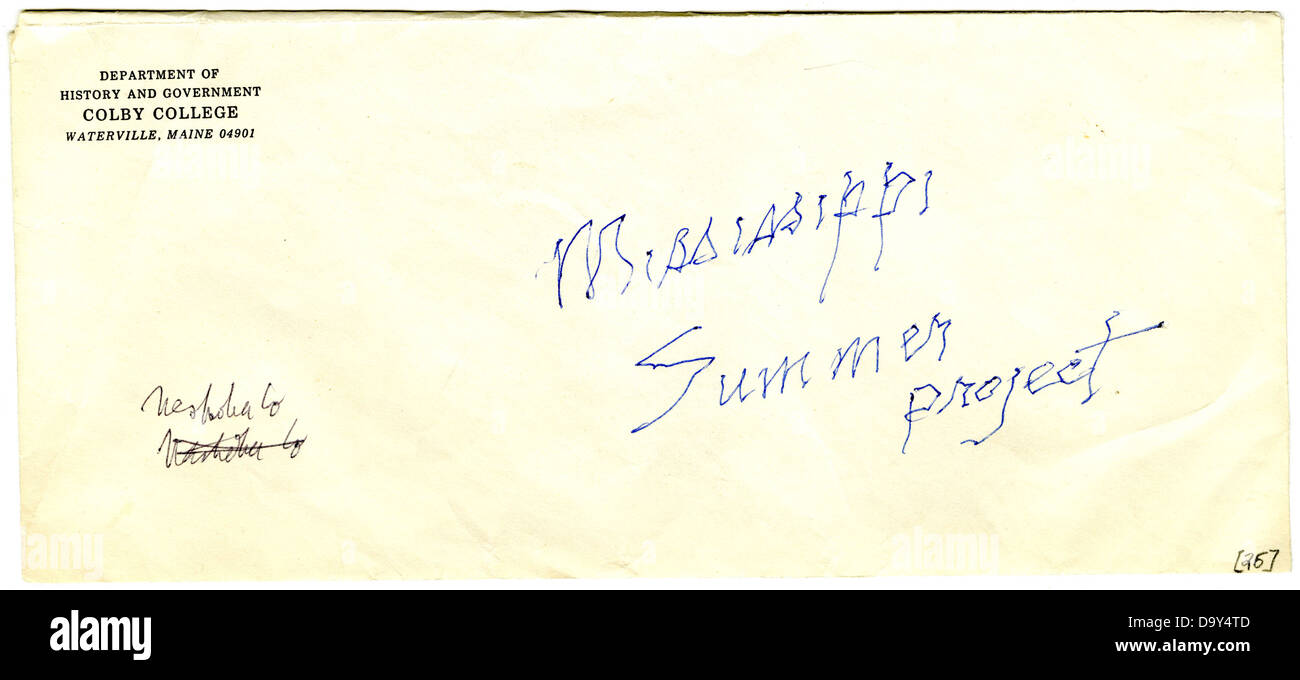 DEPARTMENT OF
HISTORY AND GOVERNMENT
COLBY COLLEGE
WATERVILLE, MAINE 04901
Mississippi
Summer
project
Neshoba Co
Neshoba Co
[25]
alamy
alamy
alamy
alamy
alamy
alamy
Image ID: D9Y4TD
www.alamy.com